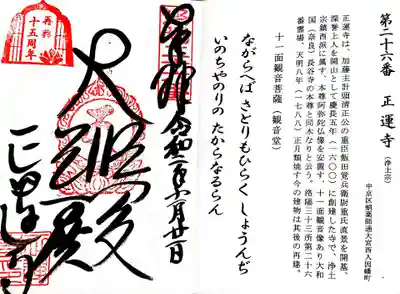 第二十六番　正運寺（浄土宗）
中京区蛸薬師通大宮西入因幡町
正運寺は、加藤主計頭清正公の重臣飯田覚兵衛尉重氏直景を開基、
深誉上人を開山として慶長五年（一六〇〇）に創建した寺で、浄土
宗鎮西派に属す。本尊阿弥陀仏像を安置す。十一面観音像あり大和
国（奈良）長谷寺の本尊と同木なりと云う。洛陽三十三所第二十六
番霊場、天明八年（一七八八）正月類焼す今の建物は其後の再建。
十一面観音菩薩（観音堂）
ながらへば さとりもひらく しょうんぢ
いのちやのりの たからなるらん
奉拝 令和二年六月廿一日
大悲殿
正運寺
再興
十五周年